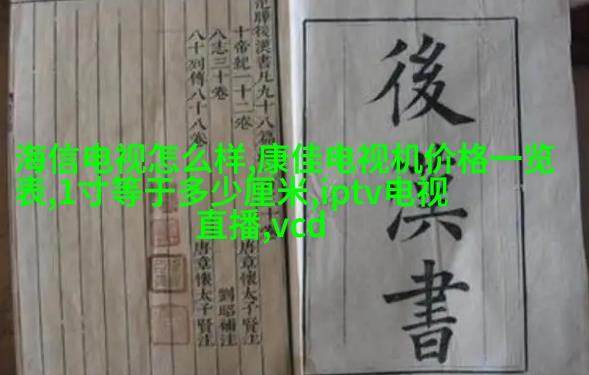 後漢書
范曄後漢書凡九十八篇
十帝紀一十二卷 唐章懷太子賢注
八志三十卷 劉昭補注
八十列傳八十八卷 唐章懷太子賢注
海信电视怎么样,康佳电视机价格一览
表,1寸等于多少厘米,iptv电视
直播,vcd